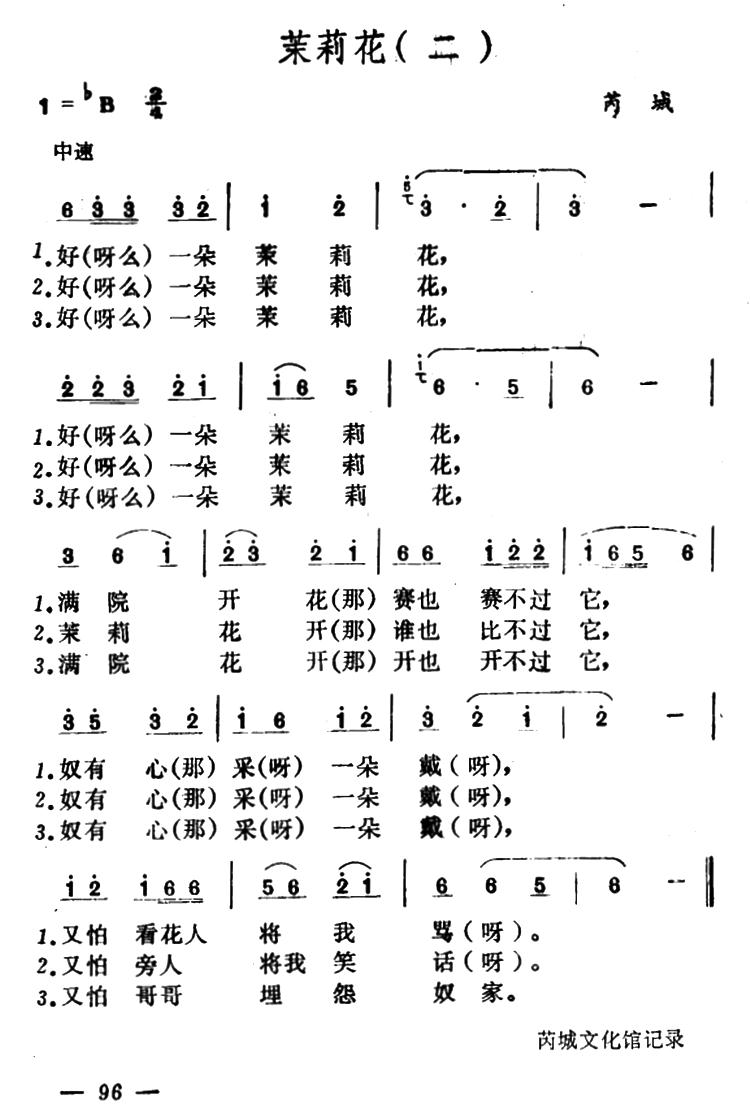 茉莉花(二)
1=♭B 2/4 芮城
中速
6 3̇ 3̇ 3̇ 2̇ | 1̇ 2̇ | 3̇ · 2̇ | 3̇ — |
1.好(呀么)一朵 茉 莉 花,
2.好(呀么)一朵 茉 莉 花,
3.好(呀么)一朵 茉 莉 花,
2̇ 2̇ 3̇ 2̇ 1̇ | 1̇ 6 5 | 6 · 5 | 6 — |
1.好(呀么)一朵 茉 莉 花,
2.好(呀么)一朵 茉 莉 花,
3.好(呀么)一朵 茉 莉 花,
3 6 1̇ | 2̇ 3̇ 2̇ 1̇ | 6 6 1̇ 2̇ 2̇ | 1̇ 6 5 6 |
1.满 院 开 花(那)赛也 赛不过 它,
2.茉 莉 花 开(那)谁也 比不过 它,
3.满 院 花 开(那)开也 开不过 它,
3̇ 5̇ 3̇ 2̇ | 1̇ 6 1̇ 2̇ | 3̇ 2̇ 1̇ | 2̇ — |
1.奴有 心(那)采(呀)一朵 戴(呀),
2.奴有 心(那)采(呀)一朵 戴(呀),
3.奴有 心(那)采(呀)一朵 戴(呀),
1̇ 2̇ 1̇ 6 6 | 5 6 2̇ 1̇ | 6 6 5 | 6 — ‖
1.又怕 看花人 将 我 骂(呀)。
2.又怕 旁人 将我 笑 话(呀)。
3.又怕 哥哥 埋 怨 奴 家。
芮城文化馆记录
— 96 —